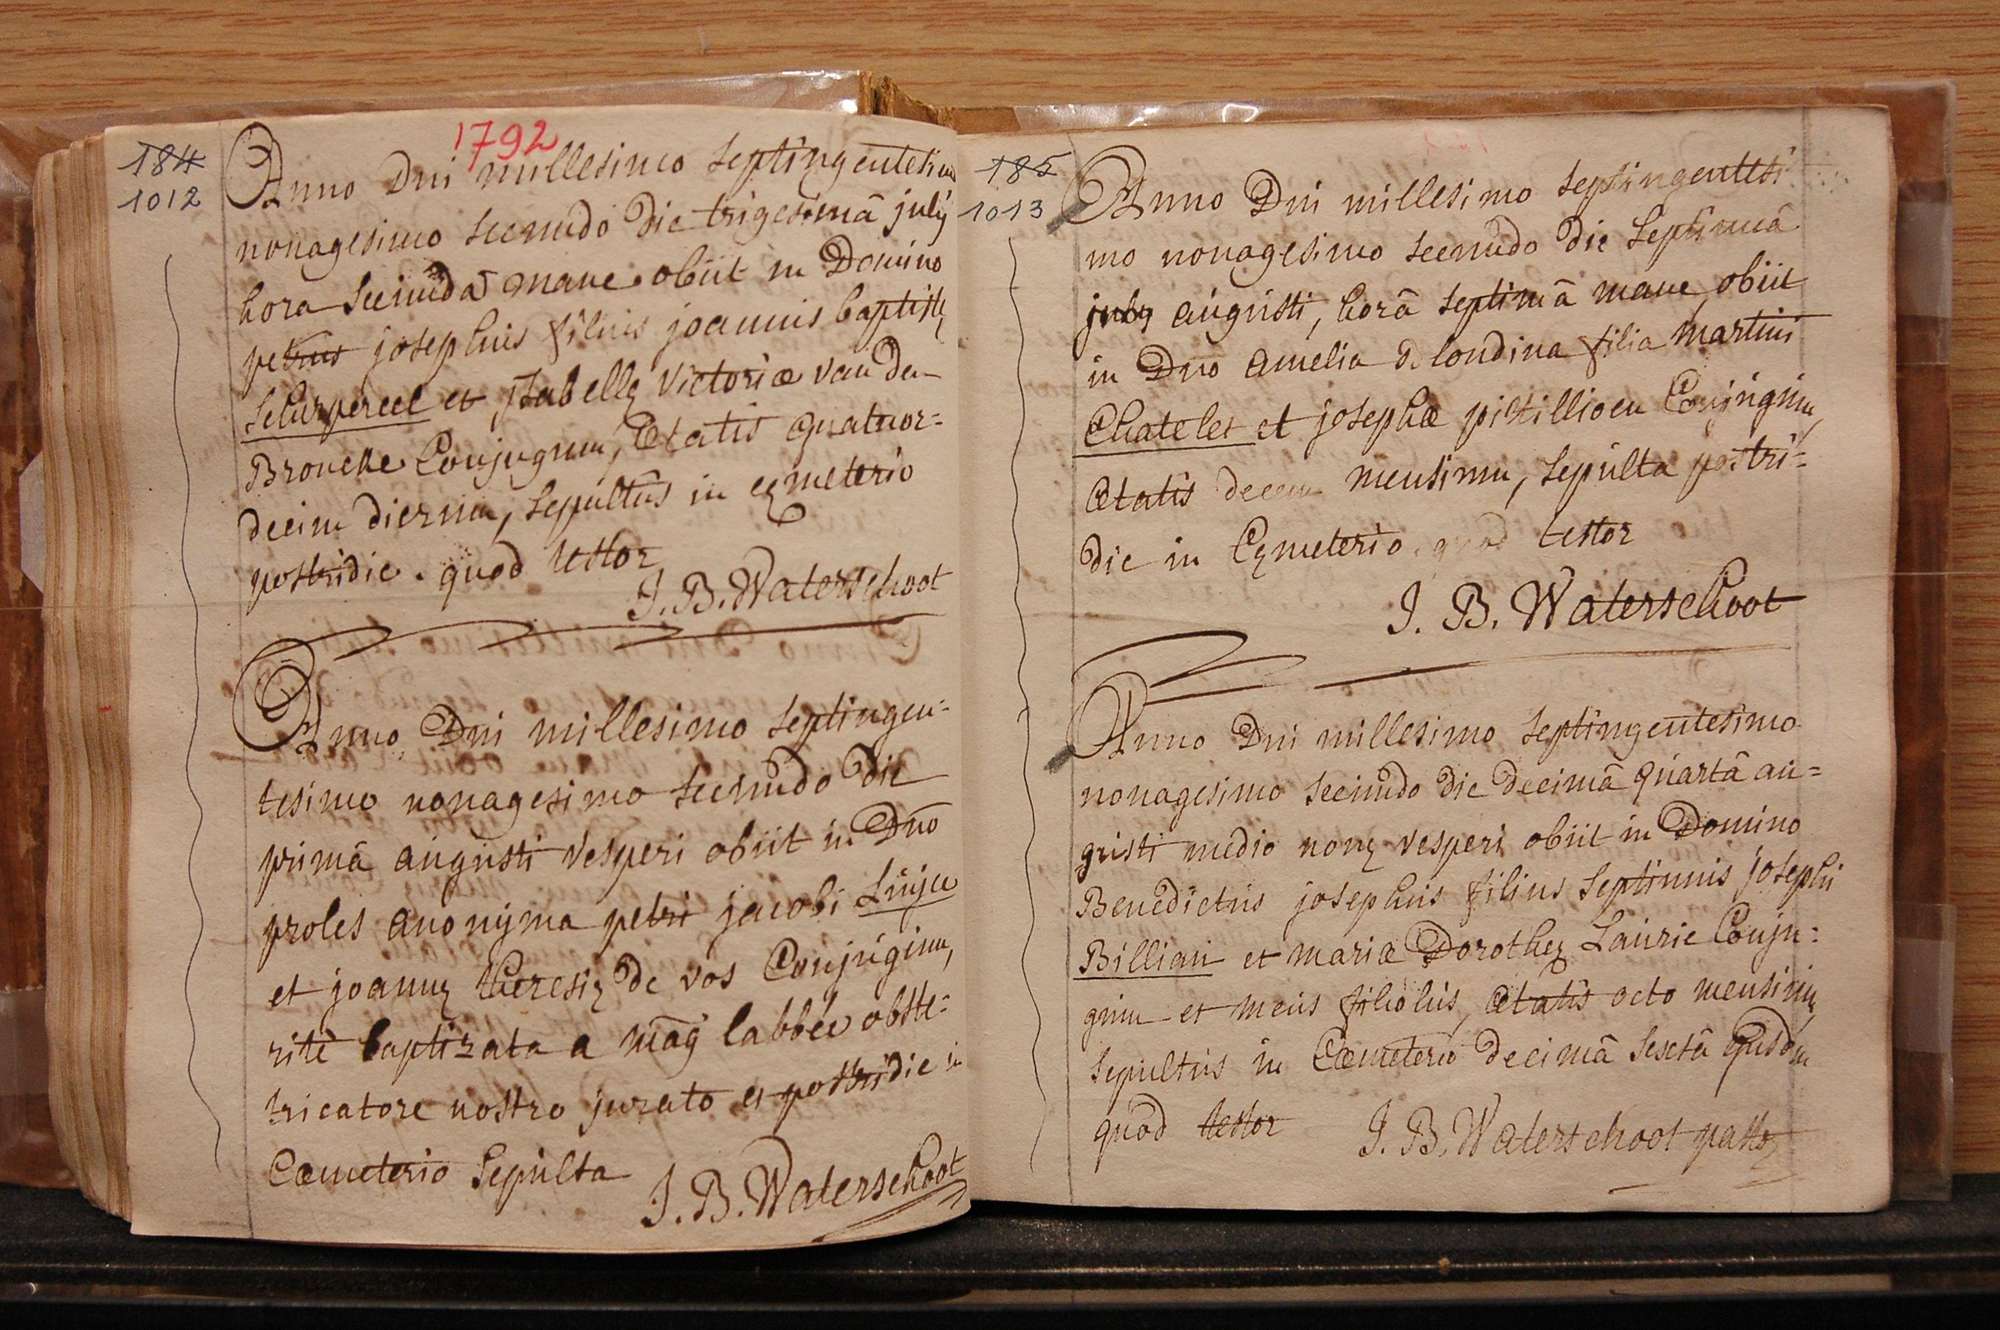 1792
184
1012
Anno Dni millesimo septingentesimo
nonagesimo secundo die trigesimâ julÿ
hora secundâ mane obiit in Domino
petrus josephus filius joannis baptistę
Scherpereel et ysabellę Victoriæ van den
Broucke Conjugum, Ætatis quatuor=
decim dierum, sepultus in cęmeterio
postridie. quod testor
J. B. Waterschoot
Anno Dni millesimo septingen=
tesimo nonagesimo secundo die
primâ augusti vesperi obiit in Dno
proles anonÿma petri jacobi
et joannę theresię de vos Conjugum,
ritè baptizata a mag labbée obste=
tricatore nostro jurato et postridie in
Cœmeterio sepulta
J. B. Waterschoot
185
1013
Anno Dni millesimo septingentesi
mo nonagesimo secundo die septimâ
july augusti, horâ septimâ mane obiit
in Dno amelia d. londina filia martini
Chatelet et josephæ pistillioen Conjugum,
Ætatis decem mensium, sepulta postri=
die in Cęmeterio. quod testor
J. B. Waterschoot
Anno Dni millesimo septingentesimo
nonagesimo secundo die decimâ quartâ au=
gusti medio nonę vesperi obiit in Domino
Benedictus josephus filius septimus josephi
Billiau et mariæ Dorotheę Laurie Conju=
gum et meus filiolus, Ætatis octo mensium,
sepultus in Cœmeterio decimâ sextâ ejusdem
quod testor J. B. Waterschoot pastor